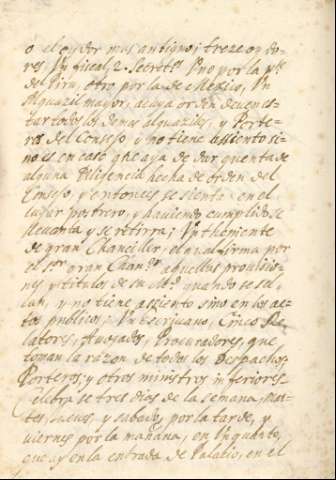 o el oydor mas antiguo; treze oydo
res, Vn fiscal, 2. Secretos Vno por la pte
del Piru, otro por la de Mexico, Vn
Alguazil mayor, a cuya orden deven es
tar todos los demas alguaziles, y Porte
ros del Consejo y no tiene assiento si
no es en caso que aya de dar quenta de
alguna diligencia hecha de orden del
Consejo, y entonces se sienta en el
lugar postrero, y haviendo cumplido se
levanta y se retirra; Vn theniente
de gran Chanciller, el qual firma por
el Sor gran Chanor aquellas provisio
nes y titulos de su Md quando se se
llan, y no tiene assiento sino en los ac
tos publicos; Vn escrivano, Cinco Re
latores, Avogados, Procuradores, que
toman la razon de todos los Despachos,
Porteros, y otros ministros inferiores
se tres dias de la semana, mar
tes, jueves, y sabado, por la tarde, y
viernes por la mañana, en Vn quarto,
que ay en la entrada de Palacio, en el